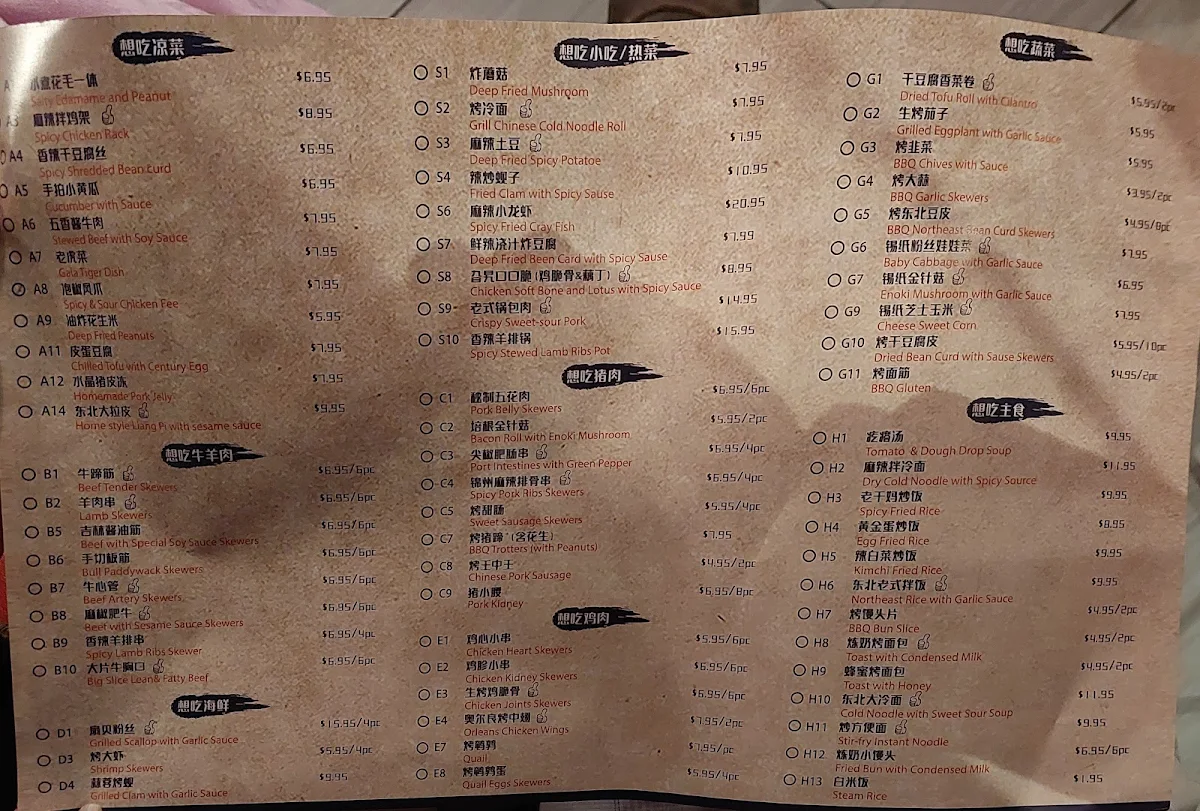 想吃凉菜
水煮花毛一体 $6.95
Salty Edamame and Peanut
A3 麻辣拌鸡架 $8.95
Spicy Chicken Rack
A4 香辣干豆腐丝 $6.95
Spicy Shredded Bean Curd
A5 手拍小黄瓜 $6.95
Cucumber with Sauce
A6 五香酱牛肉 $7.95
Stewed Beef with Soy Sauce
A7 老虎菜 $7.95
Gala Tiger Dish
A8 泡椒凤爪 $7.95
Spicy & Sour Chicken Fee
A9 油炸花生米 $5.95
Deep Fried Peanuts
A11 皮蛋豆腐 $7.95
Chilled Tofu with Century Egg
A12 水晶猪皮冻 $7.95
Homemade Pork Jelly
A14 东北大拉皮 $9.95
Home style Liang Pi with sesame sauce
想吃牛羊肉
B1 牛蹄筋 $6.95/6pc
Beef Tender Skewers
B2 羊肉串 $6.95/6pc
Lamb Skewers
B5 吉林酱油筋 $6.95/6pc
Beef with Special Soy Sauce Skewers
B6 手切板筋 $6.95/6pc
Bull Paddywack Skewers
B7 牛心管 $6.95/6pc
Beef Artery Skewers
B8 麻椒肥牛 $6.95/6pc
Beef with Sesame Sauce Skewers
B9 香辣羊排串 $6.95/4pc
Spicy Lamb Ribs Skewer
B10 大片牛胸口 $6.95/6pc
Big Slice Lean& Fatty Beef
想吃海鲜
D1 扇贝粉丝 $15.95/4pc
Grilled Scallop with Garlic Sauce
D3 烤大虾 $5.95/4pc
Shrimp Skewers
D4 蒜蓉烤蚬 $9.95
Grilled Clam with Garlic Sauce
想吃小吃/热菜
S1 炸蘑菇 $7.95
Deep Fried Mushroom
S2 烤冷面 $7.95
Grill Chinese Cold Noodle Roll
S3 麻辣土豆 $7.95
Deep Fried Spicy Potatoe
S4 辣炒蚬子 $10.95
Fried Clam with Spicy Sause
S6 麻辣小龙虾 $20.95
Spicy Fried Cray Fish
S7 鲜辣浇汁炸豆腐 $7.99
Deep Fried Been Card with Spicy Sause
S8 口口脆(鸡脆骨&藕丁) $8.95
Chicken Soft Bone and Lotus with Spicy Sauce
S9 老式锅包肉 $14.95
Crispy Sweet-sour Pork
S10 香辣羊排锅 $15.95
Spicy Stewed Lamb Ribs Pot
想吃猪肉
C1 秘制五花肉 $6.95/6pc
Pork Belly Skewers
C2 培根金针菇 $5.95/2pc
Bacon Roll with Enoki Mushroom
C3 尖椒肥肠串 $6.95/4pc
Port Intestines with Green Pepper
C4 锦州麻辣排骨串 $6.95/4pc
Spicy Pork Ribs Skewers
C5 烤甜肠 $5.95/4pc
Sweet Sausage Skewers
C7 烤猪蹄 (含花生) $7.95
BBQ Trotters (with Peanuts)
C8 烤王中王 $4.95/2pc
Chinese Pork Sausage
C9 猪小腰 $6.95/8pc
Pork Kidney
想吃鸡肉
E1 鸡心小串 $5.95/6pc
Chicken Heart Skewers
E2 鸡胗小串 $6.95/6pc
Chicken Kidney Skewers
E3 生烤鸡脆骨 $6.95/6pc
Chicken Joints Skewers
E4 奥尔良烤中翅 $7.95/2pc
Orleans Chicken Wings
E7 烤鹌鹑 $7.95/pc
Quail
E8 烤鹌鹑蛋 $5.95/4pc
Quail Eggs Skewers
想吃蔬菜
G1 干豆腐香菜卷 $5.95/2pc
Dried Tofu Roll with Cilantro
G2 生烤茄子 $5.95
Grilled Eggplant with Garlic Sauce
G3 烤韭菜 $5.95
BBQ Chives with Sauce
G4 烤大蒜 $3.95/2pc
BBQ Garlic Skewers
G5 烤东北豆皮 $4.95/8pc
BBQ Northeast Bean Curd Skewers
G6 锡纸粉丝娃娃菜 $7.95
Baby Cabbage with Garlic Sauce
G7 锡纸金针菇 $6.95
Enoki Mushroom with Garlic Sauce
G9 锡纸芝士玉米 $7.95
Cheese Sweet Corn
G10 烤干豆腐皮 $5.95/10pc
Dried Bean Curd with Sause Skewers
G11 烤面筋 $4.95/2pc
BBQ Gluten
想吃主食
H1 疙瘩汤 $9.95
Tomato & Dough Drop Soup
H2 麻辣拌冷面 $11.95
Dry Cold Noodle with Spicy Source
H3 老干妈炒饭 $9.95
Spicy Fried Rice
H4 黄金蛋炒饭 $8.95
Egg Fried Rice
H5 辣白菜炒饭 $9.95
Kimchi Fried Rice
H6 东北老式拌饭 $9.95
Northeast Rice with Garlic Sauce
H7 烤馒头片 $4.95/2pc
BBQ Bun Slice
H8 炼奶烤面包 $4.95/2pc
Toast with Condensed Milk
H9 蜂蜜烤面包 $4.95/2pc
Toast with Honey
H10 东北大冷面 $11.95
Cold Noodle with Sweet Sour Soup
H11 炒方便面 $9.95
Stir-fry Instant Noodle
H12 炼奶小馒头 $6.95/6pc
Fried Bun with Condensed Milk
H13 白米饭 $1.95
Steam Rice